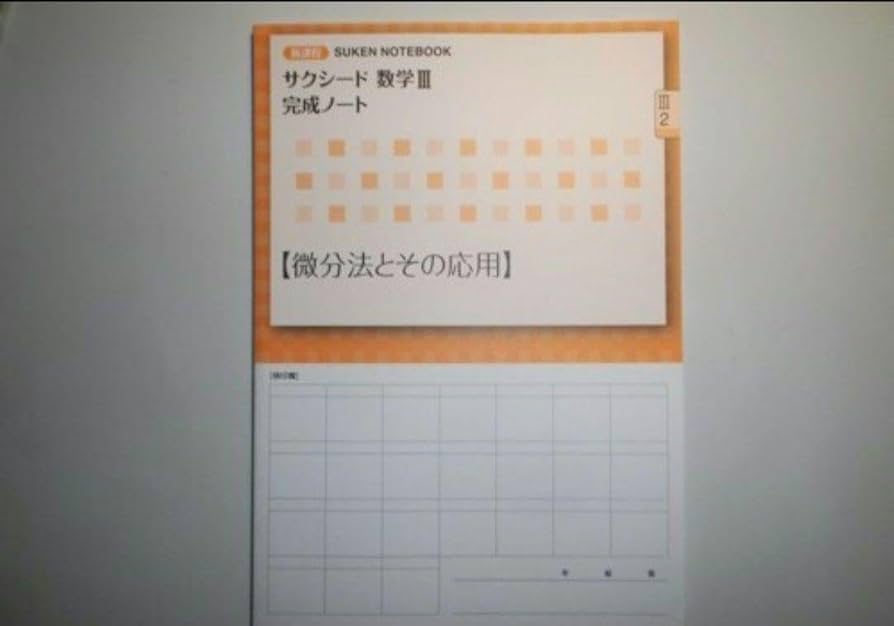 新課程 SUKEN NOTEBOOK
サクシード 数学Ⅲ
完成ノート
Ⅲ
2
【微分法とその応用】
[検印欄]
年 組 番